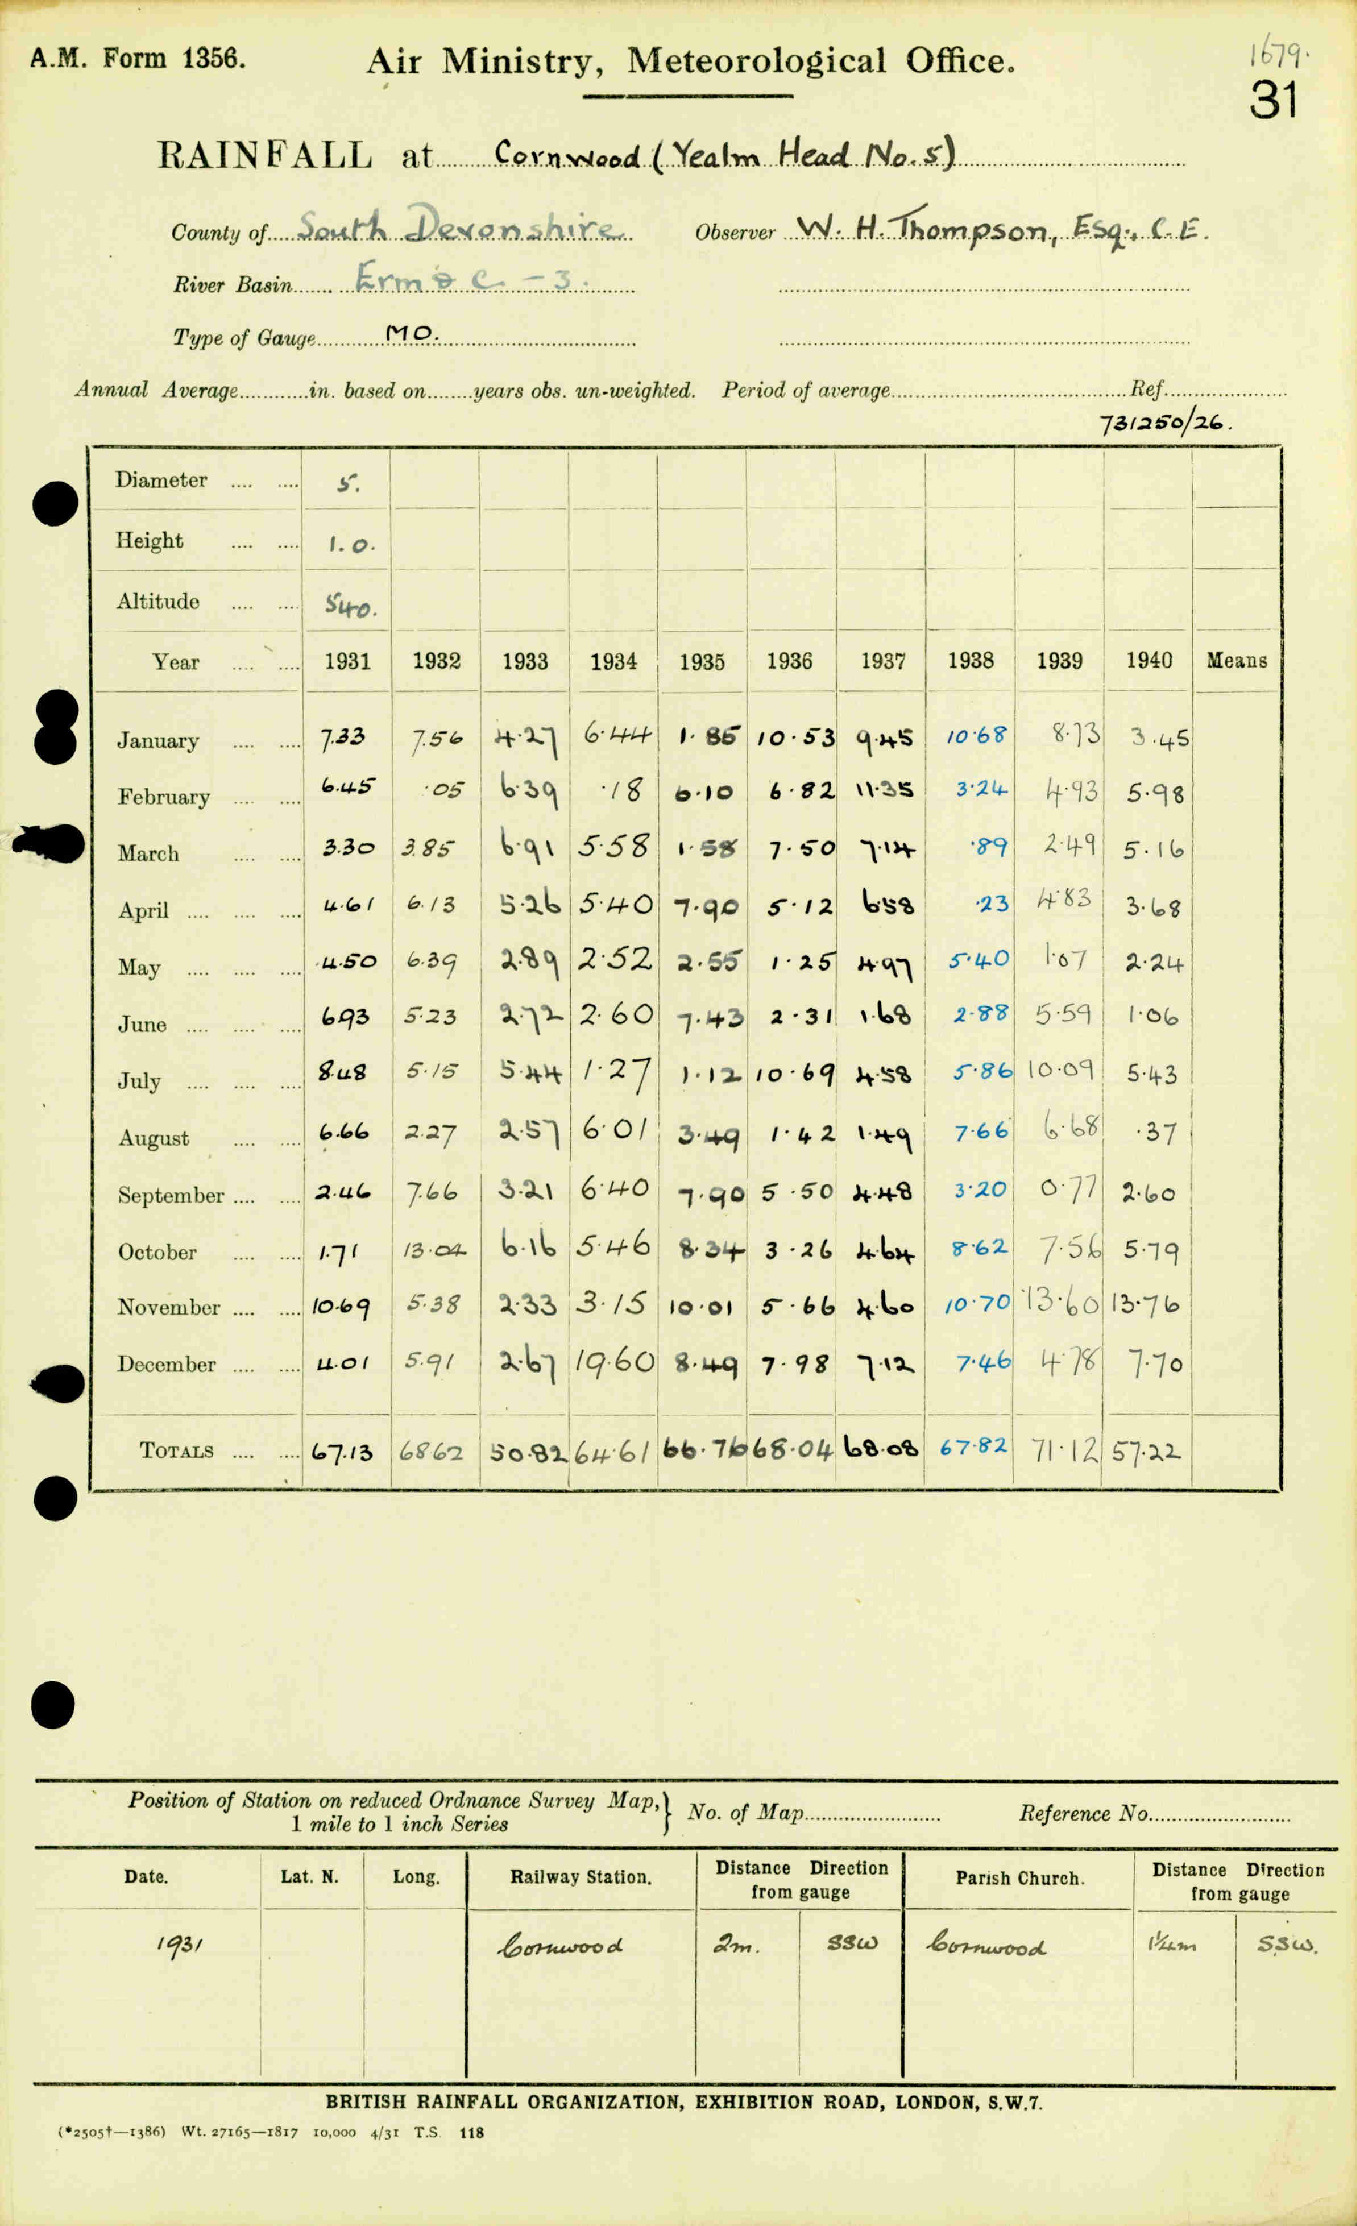 A.M. Form 1356.
Air Ministry, Meteorological Office.
1679.
31
RAINFALL at Cornwood (Yealm Head No. 5)
County of South Devonshire Observer W. H. Thompson, Esq., C.E.
River Basin Erm & C - 3.
Type of Gauge MO.
Annual Average in. based on years obs. un-weighted. Period of average Ref.
731250/26.
Diameter 5.
Height 1.0.
Altitude 540.
Year 1931 1932 1933 1934 1935 1936 1937 1938 1939 1940 Means
January 7.33 7.56 4.27 6.44 1.85 10.53 9.45 10.68 8.73 3.45
February 6.45 .05 6.39 .18 6.10 6.82 11.35 3.24 4.93 5.98
March 3.30 3.85 6.91 5.58 1.58 7.50 7.14 .89 2.49 5.16
April 4.61 6.13 5.26 5.40 7.90 5.12 6.58 .23 4.83 3.68
May 4.50 6.39 2.89 2.52 2.55 1.25 4.97 5.40 1.07 2.24
June 6.93 5.23 2.72 2.60 7.43 2.31 1.68 2.88 5.59 1.06
July 8.48 5.15 5.44 1.27 1.12 10.69 4.58 5.86 10.09 5.43
August 6.66 2.27 2.57 6.01 3.49 1.42 1.49 7.66 6.68 .37
September 2.46 7.66 3.21 6.40 7.90 5.50 4.48 3.20 0.77 2.60
October 1.71 13.04 6.16 5.46 8.34 3.26 4.64 8.62 7.56 5.79
November 10.69 5.38 2.33 3.15 10.01 5.66 4.60 10.70 13.60 13.76
December 4.01 5.91 2.67 19.60 8.49 7.98 7.12 7.46 4.78 7.70
TOTALS 67.13 68.62 50.82 64.61 66.76 68.04 68.08 67.82 71.12 57.22
Position of Station on reduced Ordnance Survey Map, } No. of Map Reference No.
1 mile to 1 inch Series
Date. Lat. N. Long. Railway Station. Distance Direction from gauge Parish Church. Distance Direction from gauge
1931 Cornwood 2m. SSW Cornwood 1¼m SSW.
BRITISH RAINFALL ORGANIZATION, EXHIBITION ROAD, LONDON, S.W.7.
(*2505†—1386) Wt. 27165—1817 10,000 4/31 T.S. 118